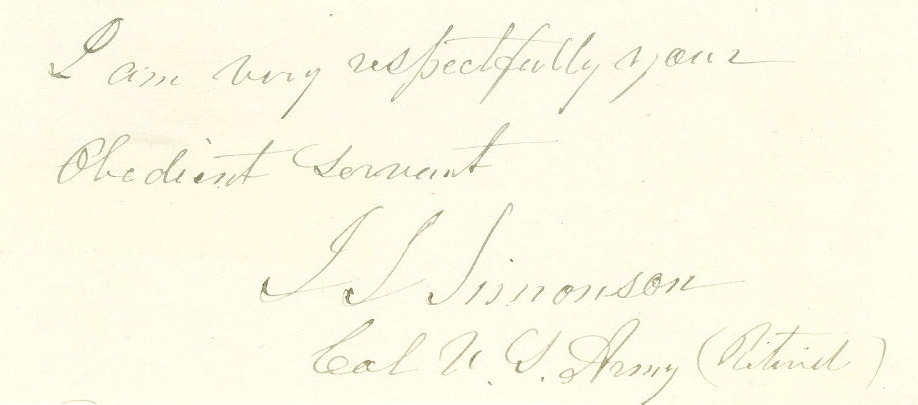 I am very respectfully your
Obedient Servant
J S Simonson
Col U. S. Army (Retired)